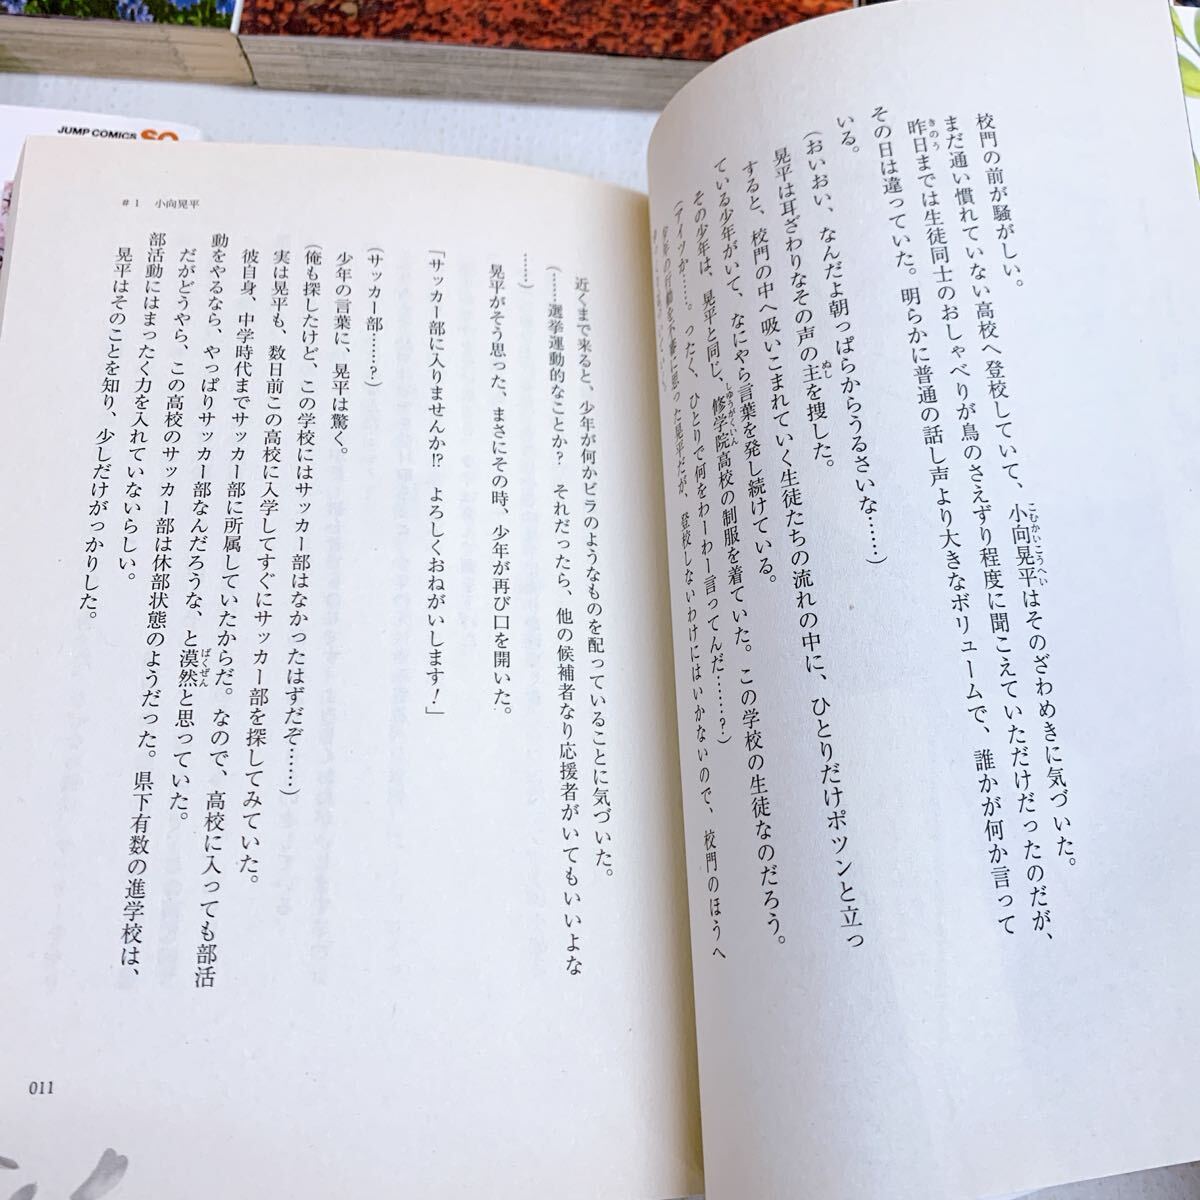 校門の前が騒がしい。
まだ通い慣れていない高校へ登校していて、小向晃平はそのざわめきに気づいた。
こむかいこうへい
昨日までは生徒同士のおしゃべりが鳥のさえずり程度に聞こえていただけだったのだが、
きのう
その日は違っていた。明らかに普通の話し声より大きなボリュームで、誰かが何か言って
いる。
(おいおい、なんだよ朝っぱらからうるさいな……)
晃平は耳ざわりなその声の主を捜した。
ぬし
すると、校門の中へ吸いこまれていく生徒たちの流れの中に、ひとりだけポツンと立っ
ている少年がいて、なにやら言葉を発し続けている。
その少年は、晃平と同じ、修学院高校の制服を着ていた。この学校の生徒なのだろう。
しゆうがくいん
(アイツか……。ったく、ひとりで何をわーわー言ってんだ……?)
少年の行動を不審に思った晃平だが、登校しないわけにはいかないので、校門のほうへ
近くまで来ると、少年が何かビラのようなものを配っていることに気づいた。
(……選挙運動的なことか? それだったら、他の候補者なり応援者がいてもいいよな
……)
晃平がそう思った、まさにその時、少年が再び口を開いた。
「サッカー部に入りませんか!? よろしくおねがいします!」
(サッカー部……?)
少年の言葉に、晃平は驚く。
(俺も探したけど、この学校にはサッカー部はなかったはずだぞ……)
実は晃平も、数日前この高校に入学してすぐにサッカー部を探してみていた。
彼自身、中学時代までサッカー部に所属していたからだ。なので、高校に入っても部活
動をやるなら、やっぱりサッカー部なんだろうな、と漠然と思っていた。
ばくぜん
だがどうやら、この高校のサッカー部は休部状態のようだった。県下有数の進学校は、
部活動にはまったく力を入れていないらしい。
晃平はそのことを知り、少しだけがっかりした。
#1 小向晃平
011
JUMP COMICS SQ